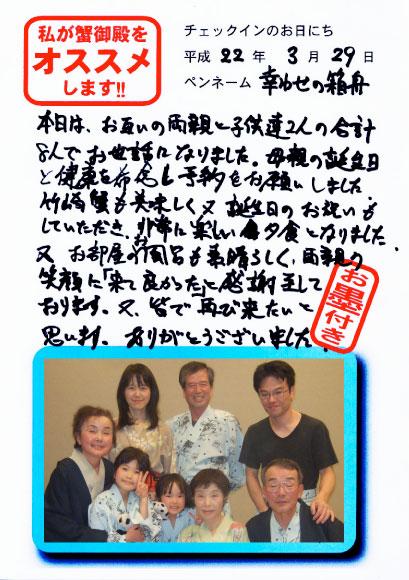 私が蟹御殿を
オススメ
します!!
チェックインのお日にち
平成 22 年 3 月 29 日
ペンネーム 幸わせの箱舟
本日は、お互いの両親と子供達2人の合計
8人でお世話になりました。母親の誕生日
と健康を 予約をお願いしました
竹崎蟹も美味しく又誕生日のお祝いも
していただき、非常に楽しい夕食となりました
又、お部屋のお風呂も素晴らしく、両親の
笑顔に「来て良かった」と感謝至して
おります。又、皆で再び来たいと
思います。ありがとうございました。
お墨付き